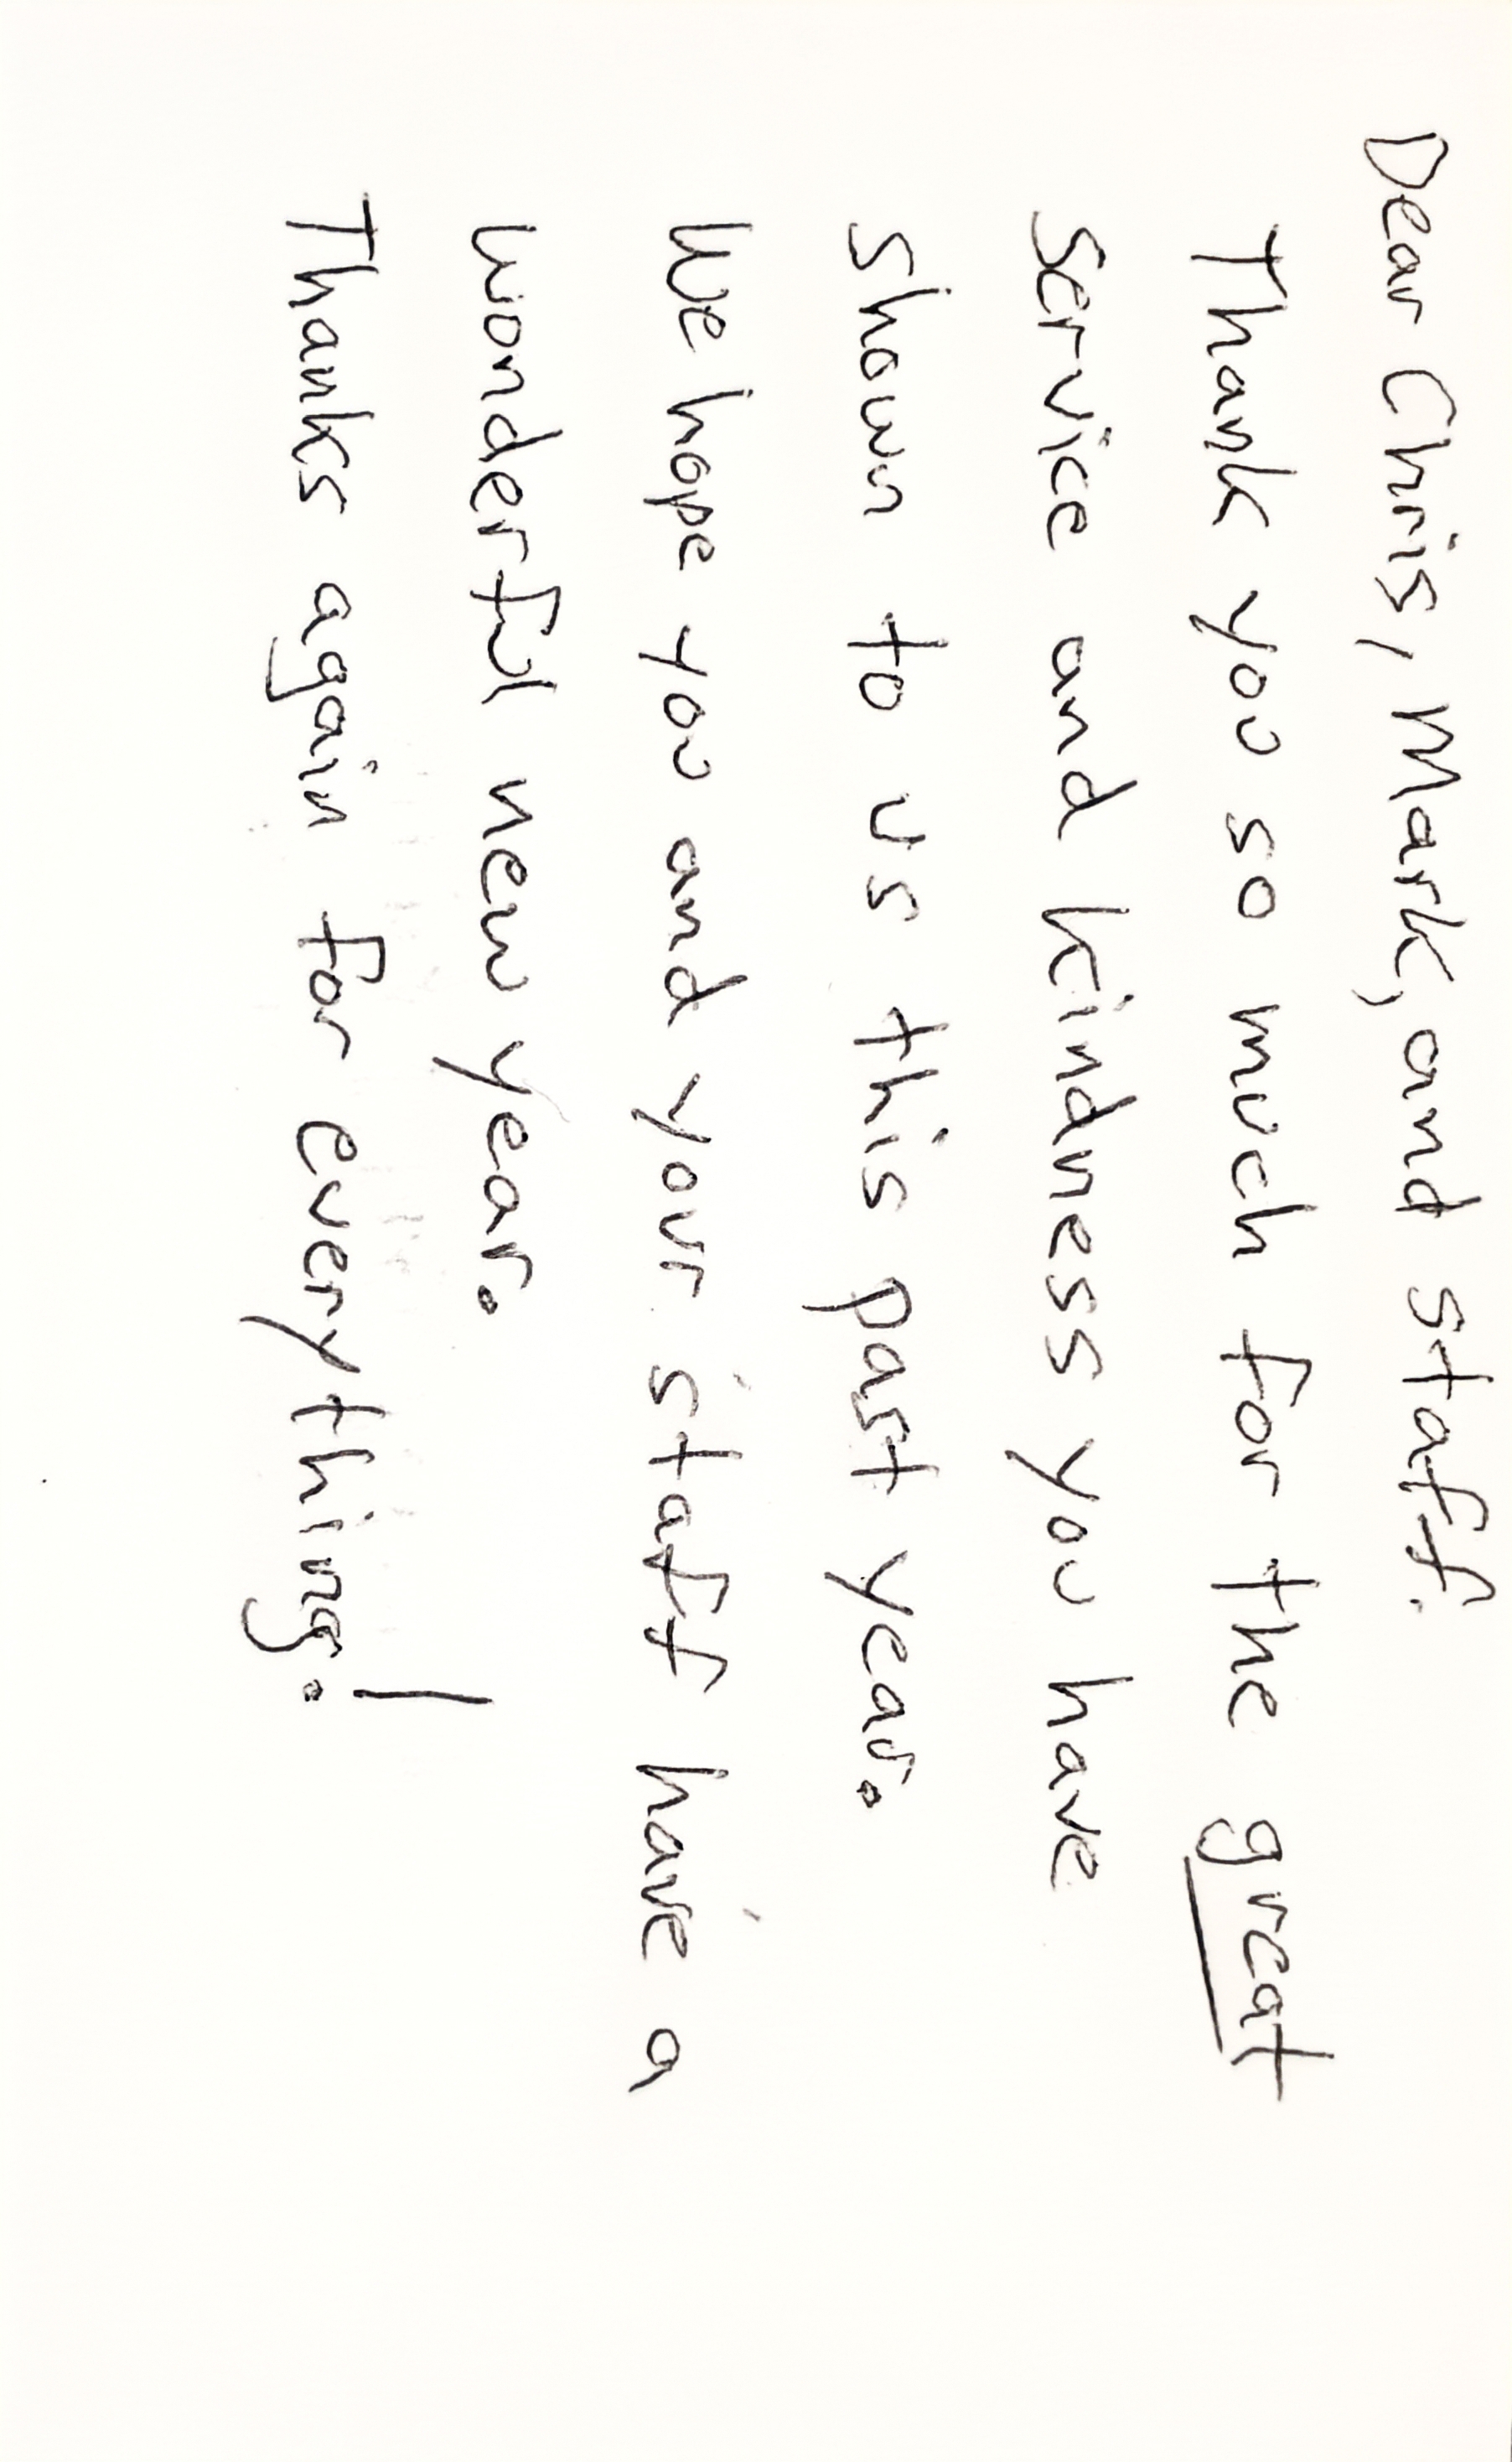 Dear Chris, Mark, and staff.
Thank you so much for the great
service and kindness you have
shown to us this past year.
We hope you and your staff have a
wonderful new year.
Thanks again for everything!